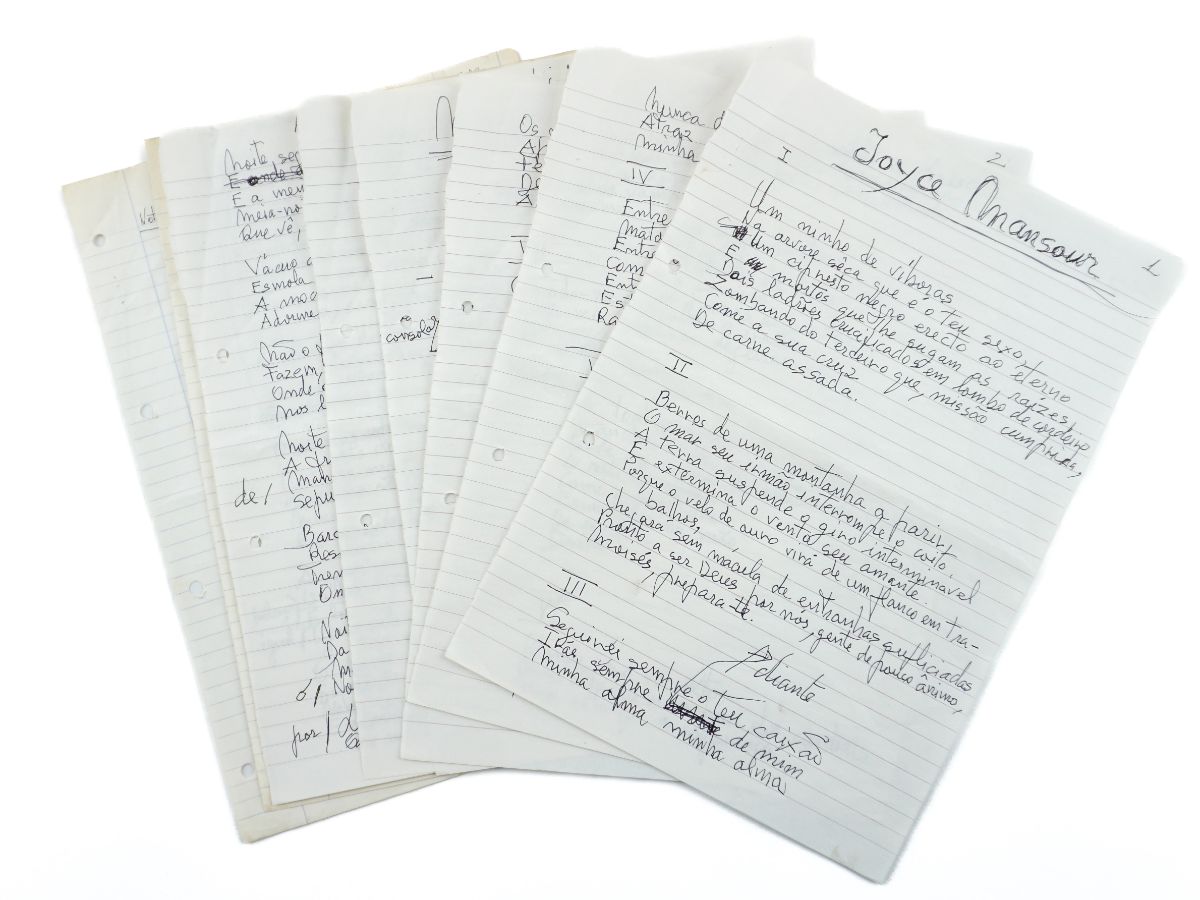 Joyce Mansour
2
1
I
Um ninho de víboras
Na arvore sêca que é o teu sexo,
Um cipreste negro erecto ao eterno
E mortos que lhe sugam as raízes,
Dois ladrões crucificados em lombo de cordeiro
Zombando do terceiro que, missão cumprida,
Come a sua cruz
De carne assada.
II
Berros de uma montanha a parir,
O mar seu irmão interrompe o coito,
A terra suspende o giro interminável
E extermina o vento seu amante.
Porque o velo de ouro virá de um flanco em tra-
balhos,
Chegará sem mácula de entranhas supliciadas
Pronto a ser Deus por nós, gente de pouco ânimo,
Moisés, prepara-te.
III
Seguirei sempre o teu caixão
Adiante
Irás sempre de mim
Minha alma minha alma
Nunca d
Atraz
Minha
IV
Entre
Mato
Entre
Com
Ent
Est
Ra
Os
De
consola
Noite seg
E onde se
E a meu
Meia-no
Que vê,
Vácuo
Esmola
A mo
Adorme
Não o
Fazem,
Onde
Nos l
Noite
de/
Sepu
Barc
Des
Noi
Da
ó/ No
por/